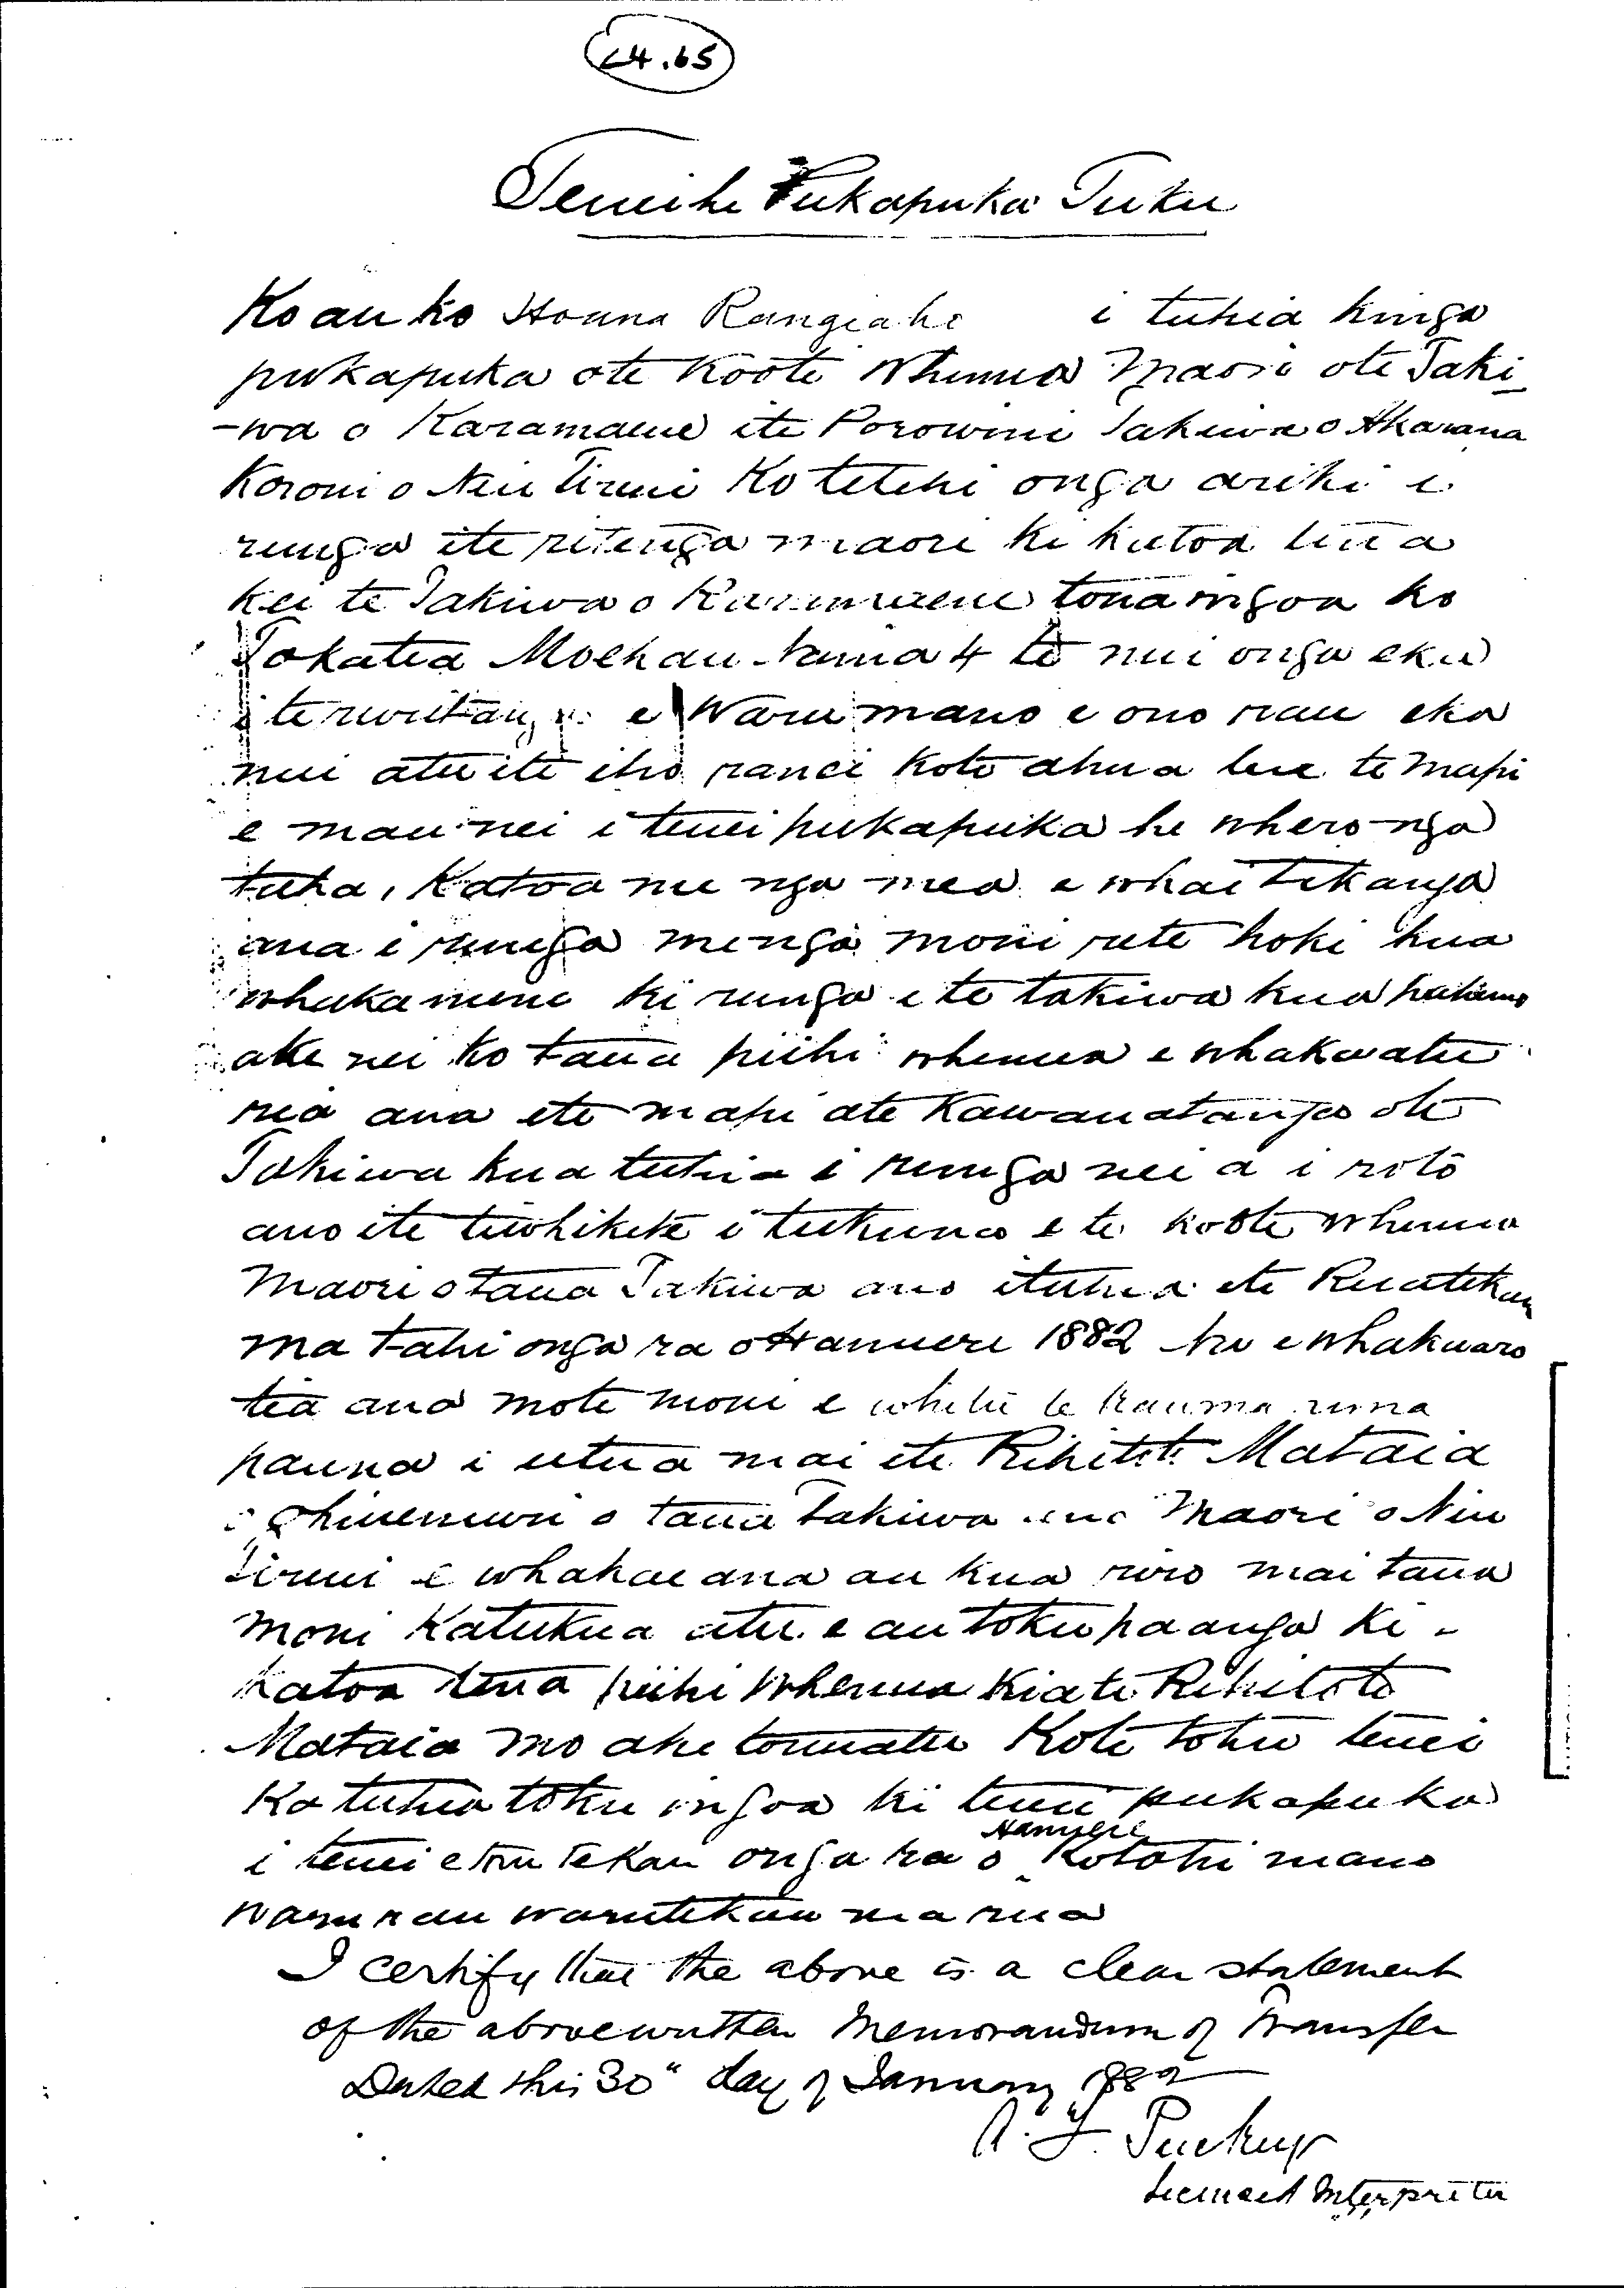 C4.65
Tenei he Pukapuka Tuku
Ko au ko Hohua Rangiahe i tuhia kinga
pukapuka ote Kooti Whenua Maori ote Taki
-wa o Karamaene ite Porowini Takiwa o Akarana
Koroni o Niu Tireni Ko tetehi onga ariki i
runga ite ritenga maori ki katoa tena
kei te Takiwa o Karamaene tona ingoa ko
Tokatea Moehau Nama 4 te nui onga eka
i te ruritanga e Waru mano e ono rau eka
nui atu ite iho ranei kote ahua kei te mapi
e mau nei i tenei pukapuka he whero nga
taha, Katoa me nga mea e whai tikanga
ana i runga me nga moni reti hoki kua
whakamene ki runga i te takiwa kua
ake nei ko taua piihi whenua e whakaatu
ria ana ete mapi ate Kawanatanga ote
Takiwa kua tuhia i runga nei a i roto
ano ite tiwhikete i tukuna e te kooti whenua
Maori o taua Takiwa ano i tuhia ite Ruatekau
ma tahi onga ra o Hanueri 1882 ko e whakaaro
tia ana mote moni e whitu te kau ma rima
pauna i utua mai ete Rihitoto Mataia
o Ohinemuri o taua Takiwa ano Maori o Niu
Tireni e whakae ana au kua riro mai taua
moni Katukua atu e au toku paanga ki
katoa tena piihi whenua kia te Rihitoto
Mataia mo ake tonuatu Kote tohu tenei
Ka tuhia toku ingoa ki tenei pukapuka
i tenei e toru tekau onga ra o Hanuere Kotahi mano
waru rau warutekau ma rua
I certify that the above is a clear statement
of the abovewritten Memorandum of Transfer
Dated this 30" day of January 1882
A. J. Puckey
Licensed Interpreter